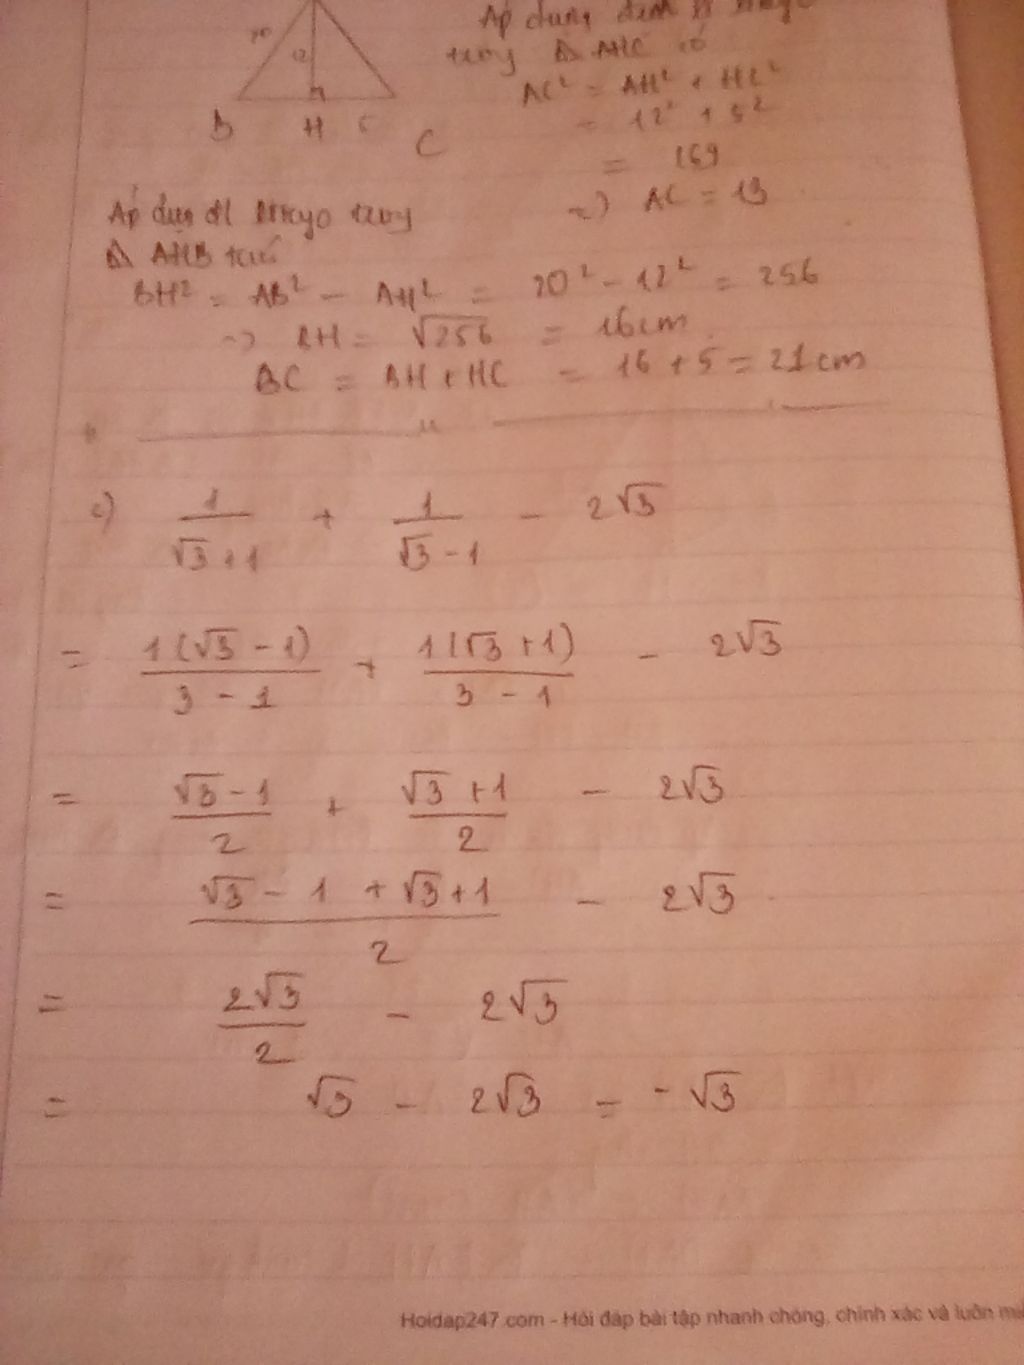 20
12
B H 5 C
Áp dụng định lí
trong ∆ AHC có
AC² = AH² + HC²
= 12² + 5²
= 169
=> AC = 13
Áp dụng đl
∆ AHB
BH² = AB² - AH² = 20² - 12² = 256
=> BH = √256 = 16cm
BC = BH + HC = 16 + 5 = 21cm
c) 1/(√3+1) + 1/(√3-1) - 2√3
= 1(√3-1)/(3-1) + 1(√3+1)/(3-1) - 2√3
= (√3-1)/2 + (√3+1)/2 - 2√3
= (√3-1+√3+1)/2 - 2√3
= 2√3/2 - 2√3
= √3 - 2√3 = -√3
Hoidap247.com - Hỏi đáp bài tập nhanh chóng, chính xác và luôn